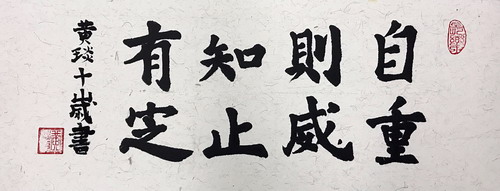 自重
則威
知止
有定
黄琰十歲書